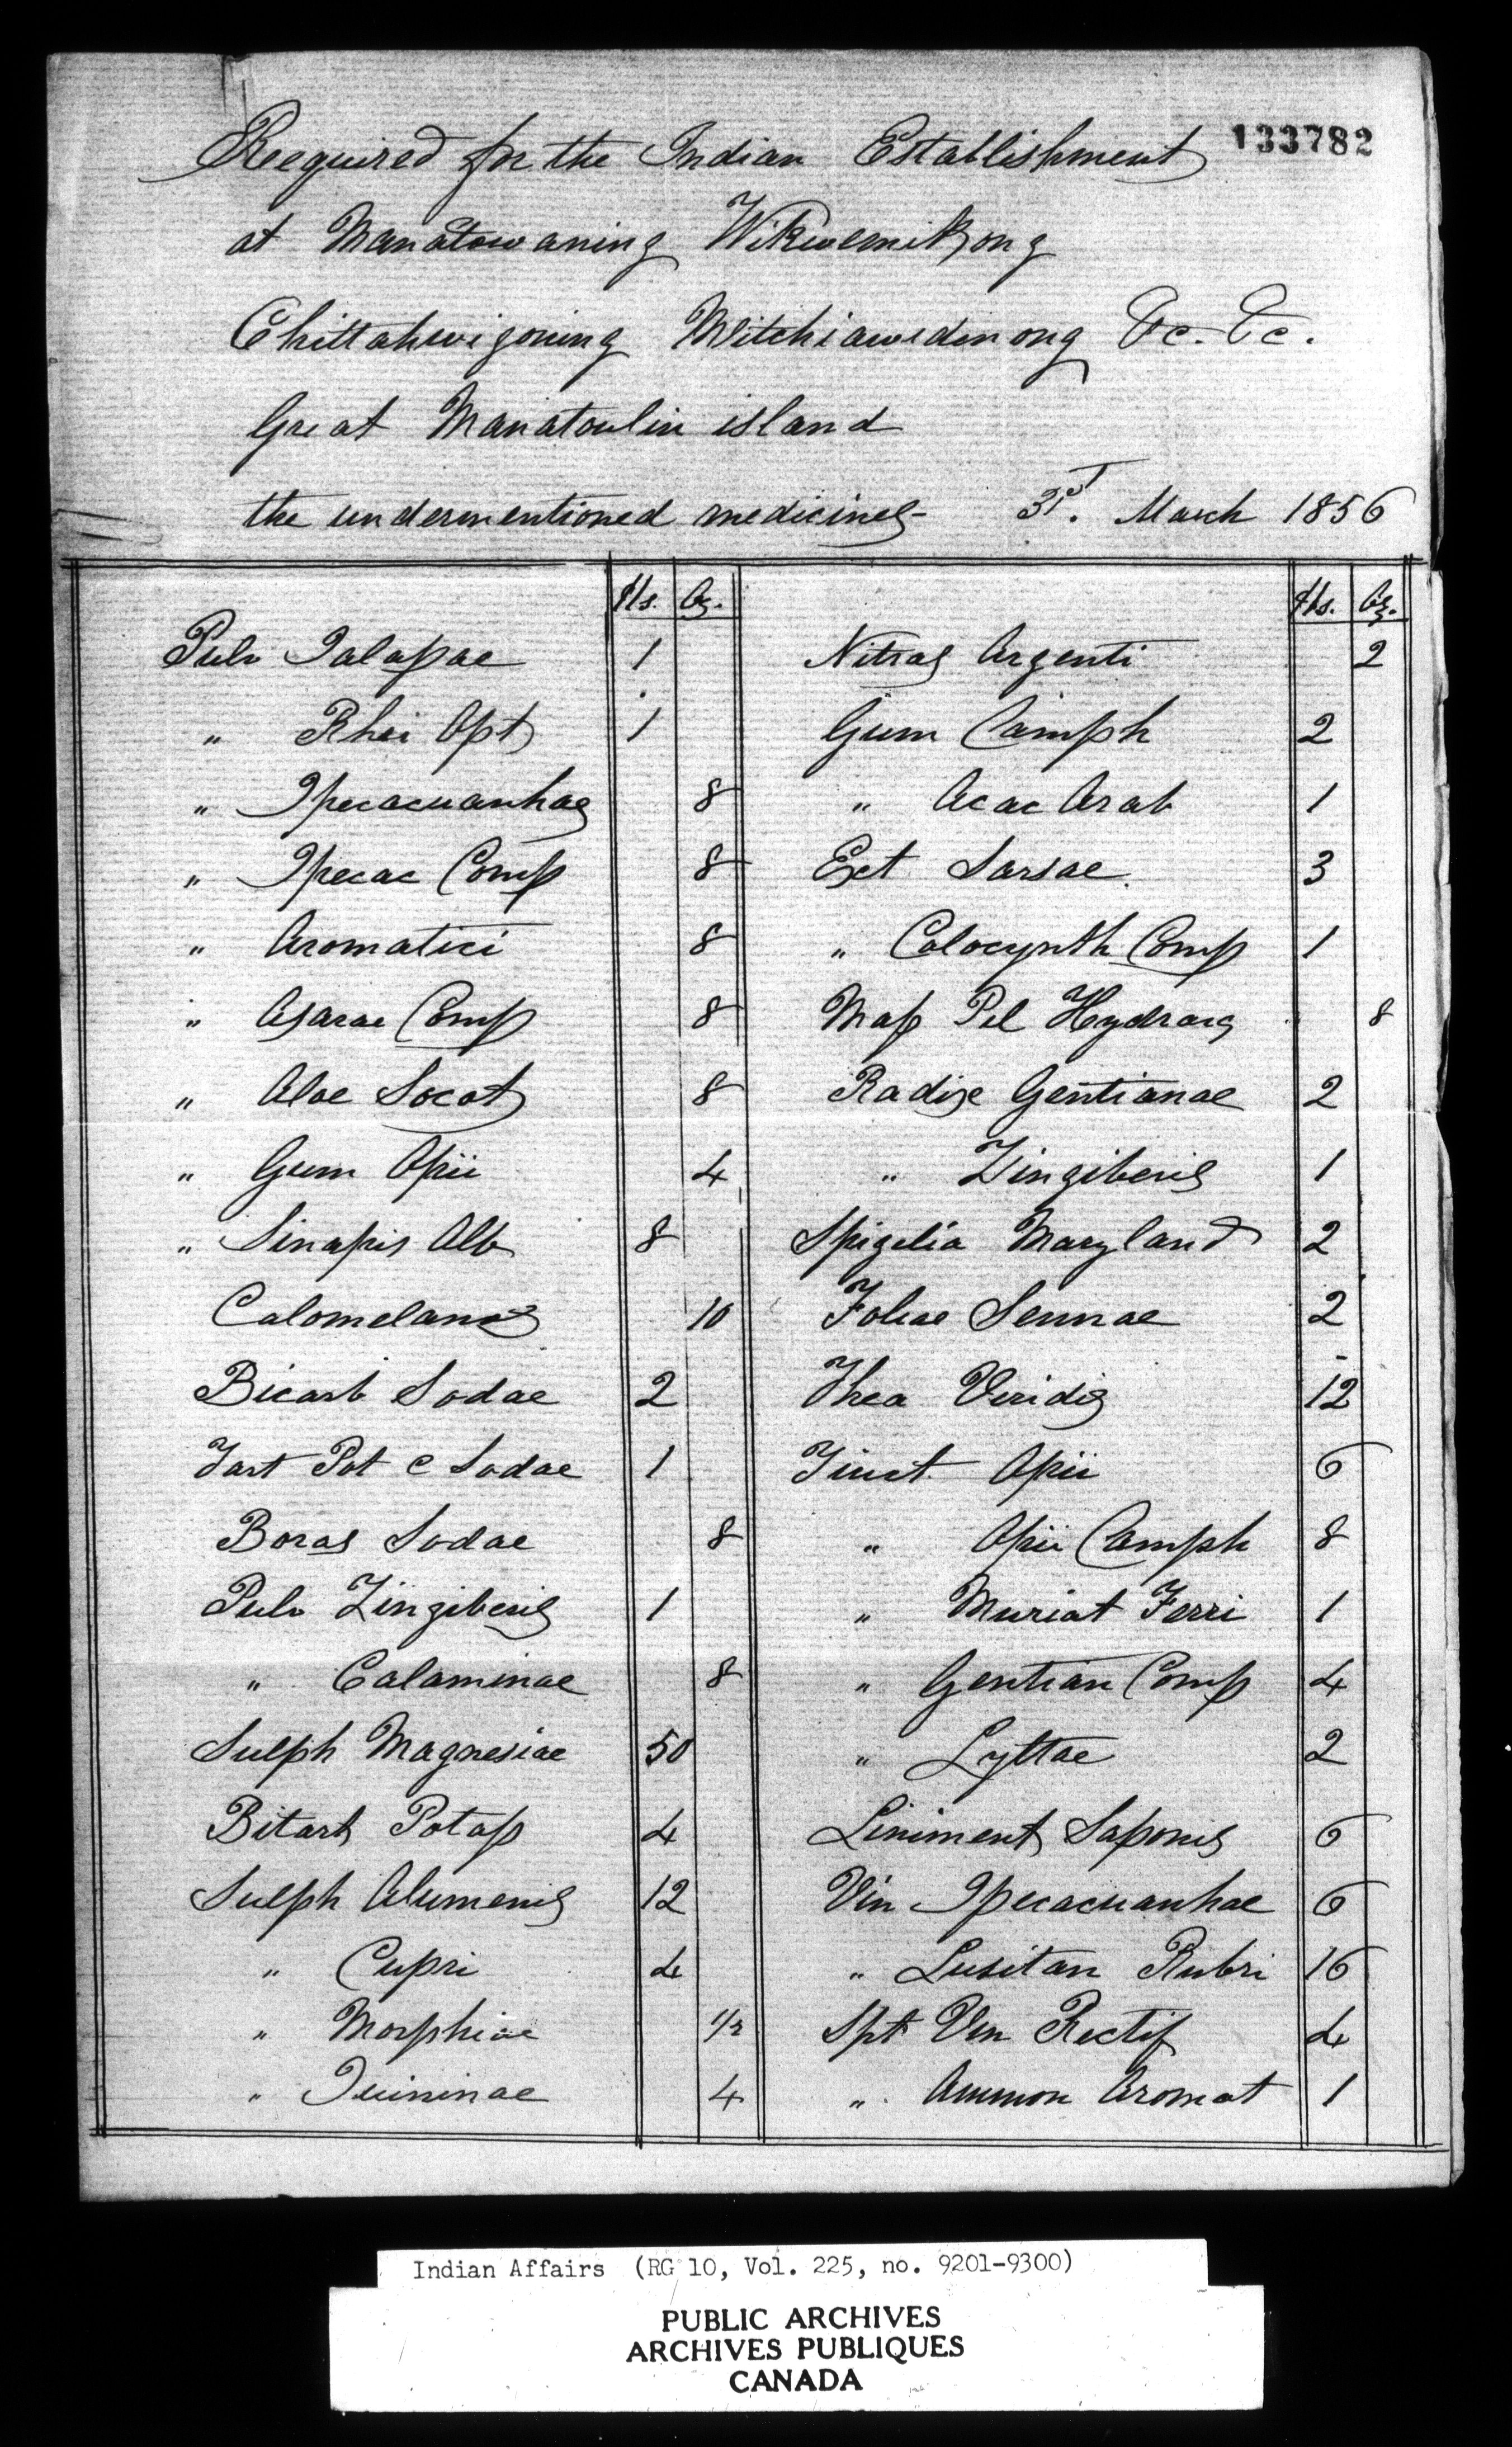 133782
Required for the Indian Establishment
at Manatowaning Wikwemikong
Chittahwigoning Mitchiawedinong &c. &c.
Great Manatoulin island
the undermentioned medicines - 31st. March 1856
lbs. Oz. lbs. Oz.
Pulv Jalapae 1 Nitras Argenti 2
" Rhei Opt 1 Gum Camph 2
" Ipecacuanhae 8 " Acac Arab 1
" Ipecac Comp 8 Ext Sarsae 3
" Aromatici 8 " Colocynth Comp 1
" Asarae Comp 8 Mass Pil Hydrarg 8
" Aloe Socot 8 Radix Gentianae 2
" Gum Opii 4 " Zingiberis 1
" Sinapis Alb 8 Spigelia Maryland 2
Calomelanos 10 Foliae Sennae 2
Bicarb Sodae 2 Thea Viridis 12
Tart Pot c Sodae 1 Tinct. Opii 6
Boras Sodae 8 " Opii Camph 8
Pulv Zingiberis 1 " Muriat Ferri 1
" Calaminae 8 " Gentian Comp 4
Sulph Magnesiae 50 " Lyttae 2
Bitart Potass 4 Liniment Saponis 6
Sulph Alumenis 12 Vin Ipecacuanhae 6
" Cupri 4 " Lusitan Rubri 16
" Morphiae 1/2 Spt Vin Rectif 4
" Quininae 4 " Ammon Aromat 1
Indian Affairs (RG 10, Vol. 225, no. 9201-9300)
PUBLIC ARCHIVES
ARCHIVES PUBLIQUES
CANADA